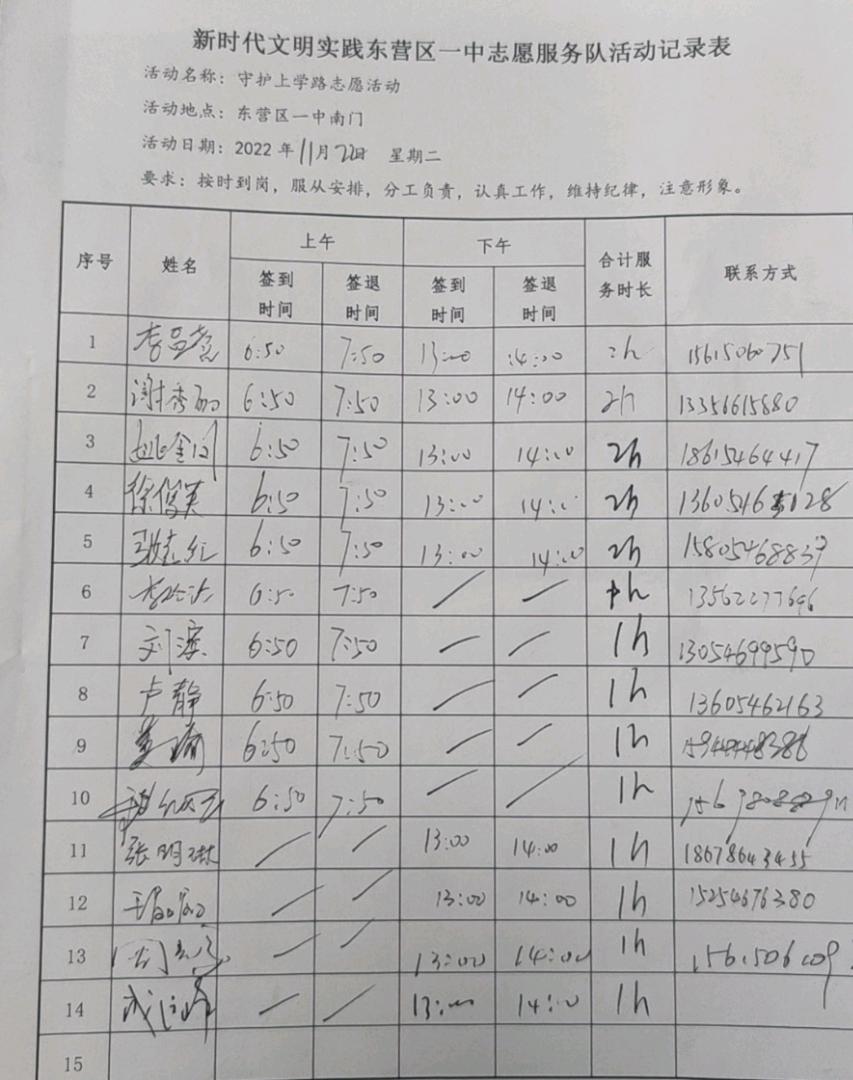 新时代文明实践东营区一中志愿服务队活动记录表
活动名称：守护上学路志愿活动
活动地点：东营区一中南门
活动日期：2022年11月22日 星期二
要求：按时到岗，服从安排，分工负责，认真工作，维持纪律，注意形象。
序号 姓名 上午 下午 合计服务时长 联系方式
签到时间 签退时间 签到时间 签退时间
1 6:50 7:50 13:00 14:00 2h 15615060751
2 谢秀丽 6:50 7:50 13:00 14:00 2h 13356615880
3 6:50 7:50 13:00 14:00 2h 18615464417
4 徐俊英 6:50 7:50 13:00 14:00 2h
5 6:50 7:50 13:00 14:00 2h 15805468839
6 6:50 7:50 / / 1h 13562277696
7 刘滨 6:50 7:50 / / 1h 13054699590
8 卢静 6:50 7:50 / / 1h 13605462163
9 6:50 7:50 / / 1h
10 6:50 7:50 / / 1h
11 张明琳 / / 13:00 14:00 1h 18678643455
12 / / 13:00 14:00 1h 15254676380
13 / / 13:00 14:00 1h
14 / / 13:00 14:00 1h
15